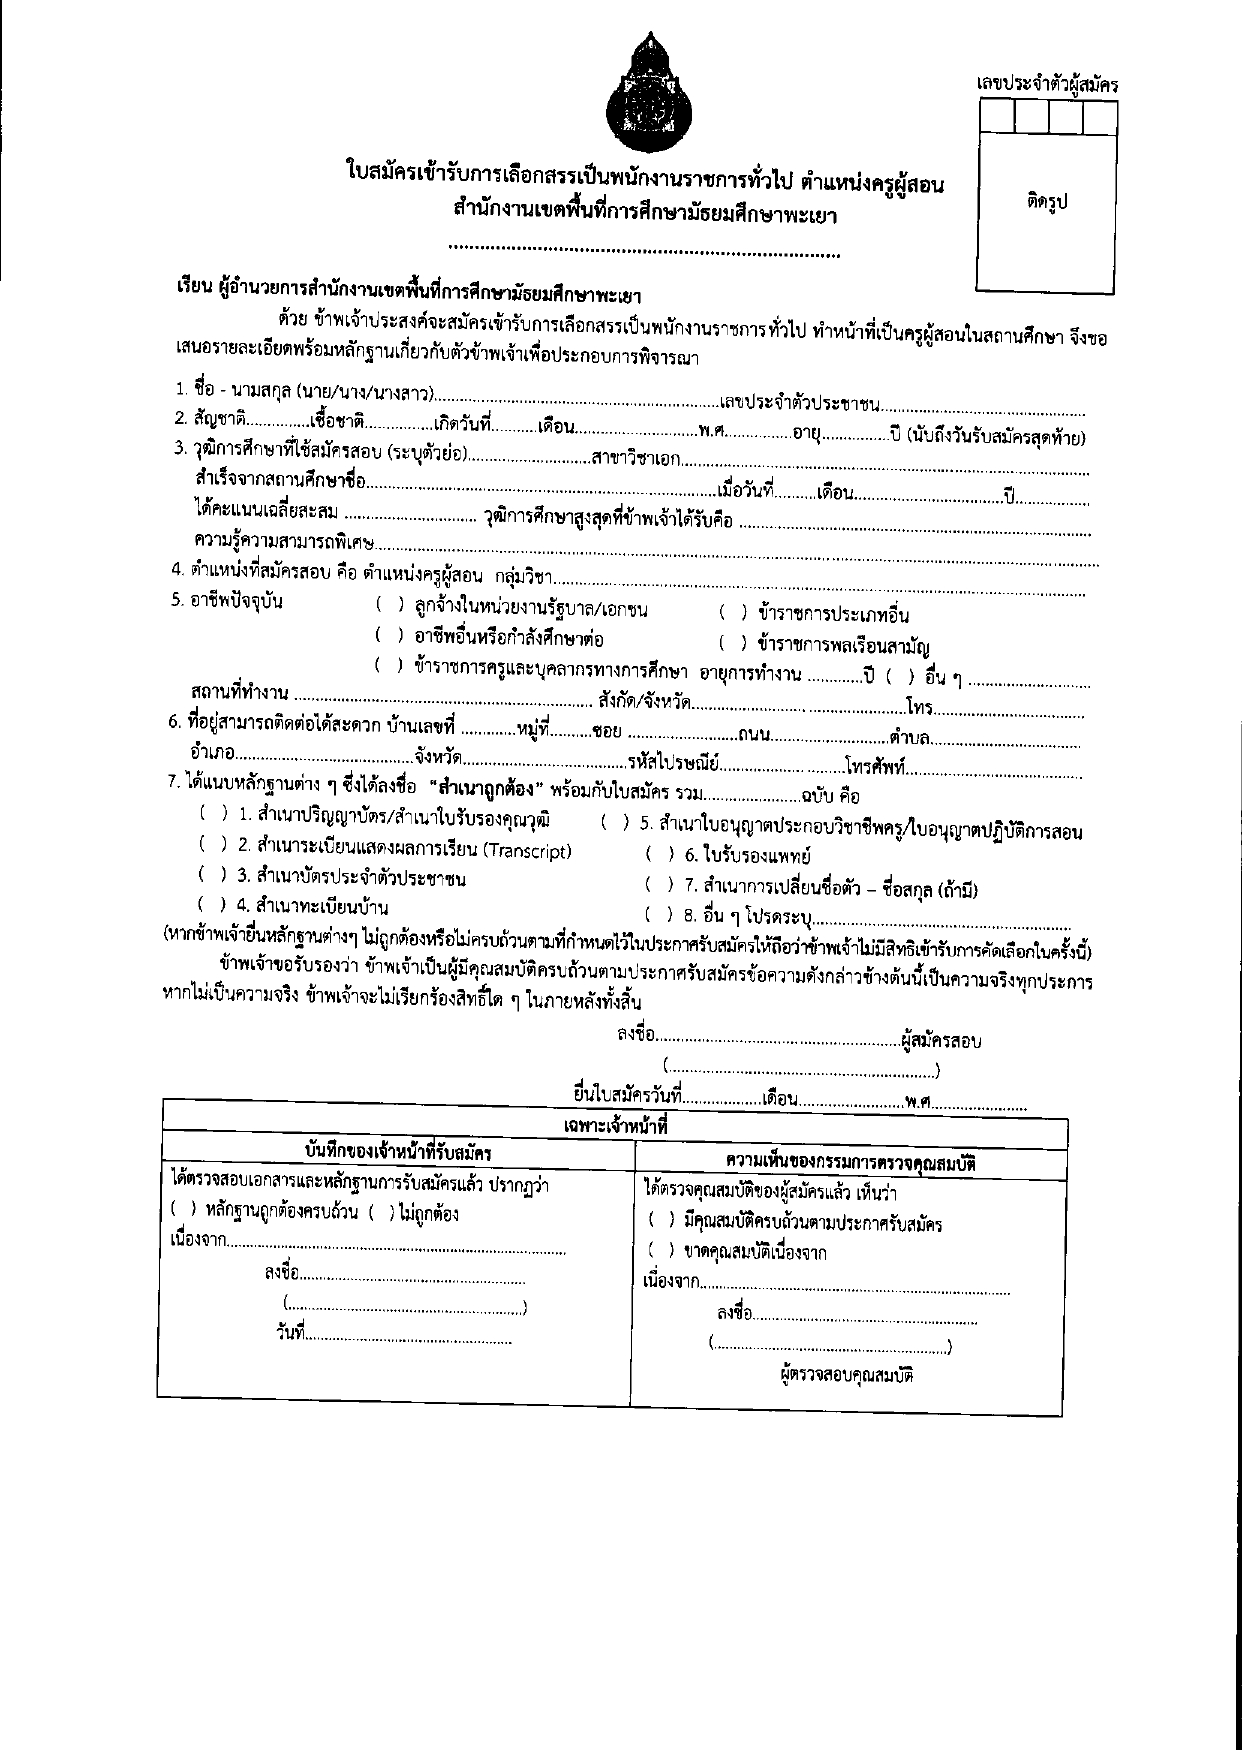 เลขประจำตัวผู้สมัคร
ติดรูป
ใบสมัครเข้ารับการเลือกสรรเป็นพนักงานราชการทั่วไป ตำแหน่งครูผู้สอน
สำนักงานเขตพื้นที่การศึกษามัธยมศึกษาพะเยา
................................................................................
เรียน ผู้อำนวยการสำนักงานเขตพื้นที่การศึกษามัธยมศึกษาพะเยา
ด้วย ข้าพเจ้าประสงค์จะสมัครเข้ารับการเลือกสรรเป็นพนักงานราชการทั่วไป ทำหน้าที่เป็นครูผู้สอนในสถานศึกษา จึงขอ
เสนอรายละเอียดพร้อมหลักฐานเกี่ยวกับตัวข้าพเจ้าเพื่อประกอบการพิจารณา
1. ชื่อ - นามสกุล (นาย/นาง/นางสาว)..............................เลขประจำตัวประชาชน..............................
2. สัญชาติ..............เชื้อชาติ...............เกิดวันที่..........เดือน..........................พ.ศ...............อายุ...............ปี (นับถึงวันรับสมัครสุดท้าย)
3. วุฒิการศึกษาที่ใช้สมัครสอบ (ระบุตัวย่อ)...........................สาขาวิชาเอก..............................
สำเร็จจากสถานศึกษาชื่อ..............................เมื่อวันที่.........เดือน..............................ปี...............
ได้คะแนนเฉลี่ยสะสม ............................ วุฒิการศึกษาสูงสุดที่ข้าพเจ้าได้รับคือ ..............................
ความรู้ความสามารถพิเศษ..............................
4. ตำแหน่งที่สมัครสอบ คือ ตำแหน่งครูผู้สอน กลุ่มวิชา..............................
5. อาชีพปัจจุบัน ( ) ลูกจ้างในหน่วยงานรัฐบาล/เอกชน ( ) ข้าราชการประเภทอื่น
( ) อาชีพอื่นหรือกำลังศึกษาต่อ ( ) ข้าราชการพลเรือนสามัญ
( ) ข้าราชการครูและบุคลากรทางการศึกษา อายุการทำงาน ............ปี ( ) อื่น ๆ ..........................
สถานที่ทำงาน .............................. สังกัด/จังหวัด..............................โทร..............................
6. ที่อยู่สามารถติดต่อได้สะดวก บ้านเลขที่ ............หมู่ที่.........ซอย ........................ถนน..........................ตำบล..............................
อำเภอ..............................จังหวัด..............................รหัสไปรษณีย์...........................โทรศัพท์..............................
7. ได้แนบหลักฐานต่าง ๆ ซึ่งได้ลงชื่อ "สำเนาถูกต้อง" พร้อมกับใบสมัคร รวม......................ฉบับ คือ
( ) 1. สำเนาปริญญาบัตร/สำเนาใบรับรองคุณวุฒิ ( ) 5. สำเนาใบอนุญาตประกอบวิชาชีพครู/ใบอนุญาตปฏิบัติการสอน
( ) 2. สำเนาระเบียนแสดงผลการเรียน (Transcript) ( ) 6. ใบรับรองแพทย์
( ) 3. สำเนาบัตรประจำตัวประชาชน ( ) 7. สำเนาการเปลี่ยนชื่อตัว – ชื่อสกุล (ถ้ามี)
( ) 4. สำเนาทะเบียนบ้าน ( ) 8. อื่น ๆ โปรดระบุ..............................
(หากข้าพเจ้ายื่นหลักฐานต่างๆ ไม่ถูกต้องหรือไม่ครบถ้วนตามที่กำหนดไว้ในประกาศรับสมัครให้ถือว่าข้าพเจ้าไม่มีสิทธิเข้ารับการคัดเลือกในครั้งนี้)
ข้าพเจ้าขอรับรองว่า ข้าพเจ้าเป็นผู้มีคุณสมบัติครบถ้วนตามประกาศรับสมัครข้อความดังกล่าวข้างต้นนี้เป็นความจริงทุกประการ
หากไม่เป็นความจริง ข้าพเจ้าจะไม่เรียกร้องสิทธิ์ใด ๆ ในภายหลังทั้งสิ้น
ลงชื่อ..............................ผู้สมัครสอบ
(..............................)
ยื่นใบสมัครวันที่..................เดือน........................พ.ศ......................
เฉพาะเจ้าหน้าที่
บันทึกของเจ้าหน้าที่รับสมัคร
ได้ตรวจสอบเอกสารและหลักฐานการรับสมัครแล้ว ปรากฏว่า
( ) หลักฐานถูกต้องครบถ้วน ( ) ไม่ถูกต้อง
เนื่องจาก..............................
ลงชื่อ..............................
(..............................)
วันที่..............................
ความเห็นของกรรมการตรวจคุณสมบัติ
ได้ตรวจคุณสมบัติของผู้สมัครแล้ว เห็นว่า
( ) มีคุณสมบัติครบถ้วนตามประกาศรับสมัคร
( ) ขาดคุณสมบัติเนื่องจาก
เนื่องจาก..............................
ลงชื่อ..............................
(..............................)
ผู้ตรวจสอบคุณสมบัติ